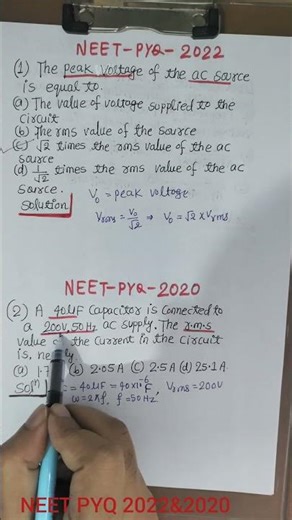 NEET-PYQ-2022
(1) The peak voltage of the AC source
is equal to.
(a) The value of voltage supplied to the
circuit
(b) The rms value of the source
(c) √2 times the rms value of the ac
source
(d) 1/√2 times the rms value of the ac
source.
Solution
V₀ = peak voltage
Vrms = V₀/√2 ⇒ V₀ = √2 × Vrms
NEET-PYQ-2020
(2) A 40μF Capacitor is connected to
a 200V, 50Hz ac supply. The r.m.s
value of the current in the circuit
is, nearly
(a) 1.7 (b) 2.05A (c) 2.5A (d) 25.1A
Solⁿ = 40μF = 40×10⁻⁶F, Vrms = 200V
ω = 2πf, f = 50Hz.
NEET PYQ 2022&2020